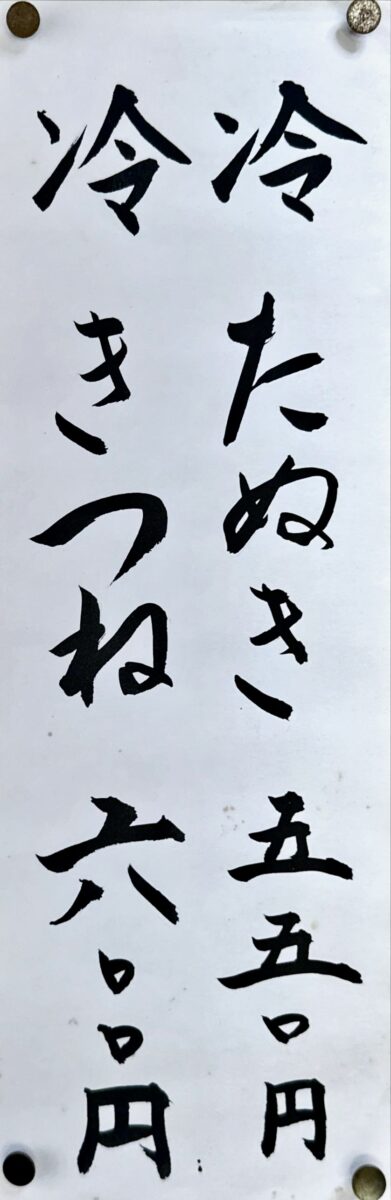 冷 たぬき 五五〇円
冷 きつね 六〇〇円